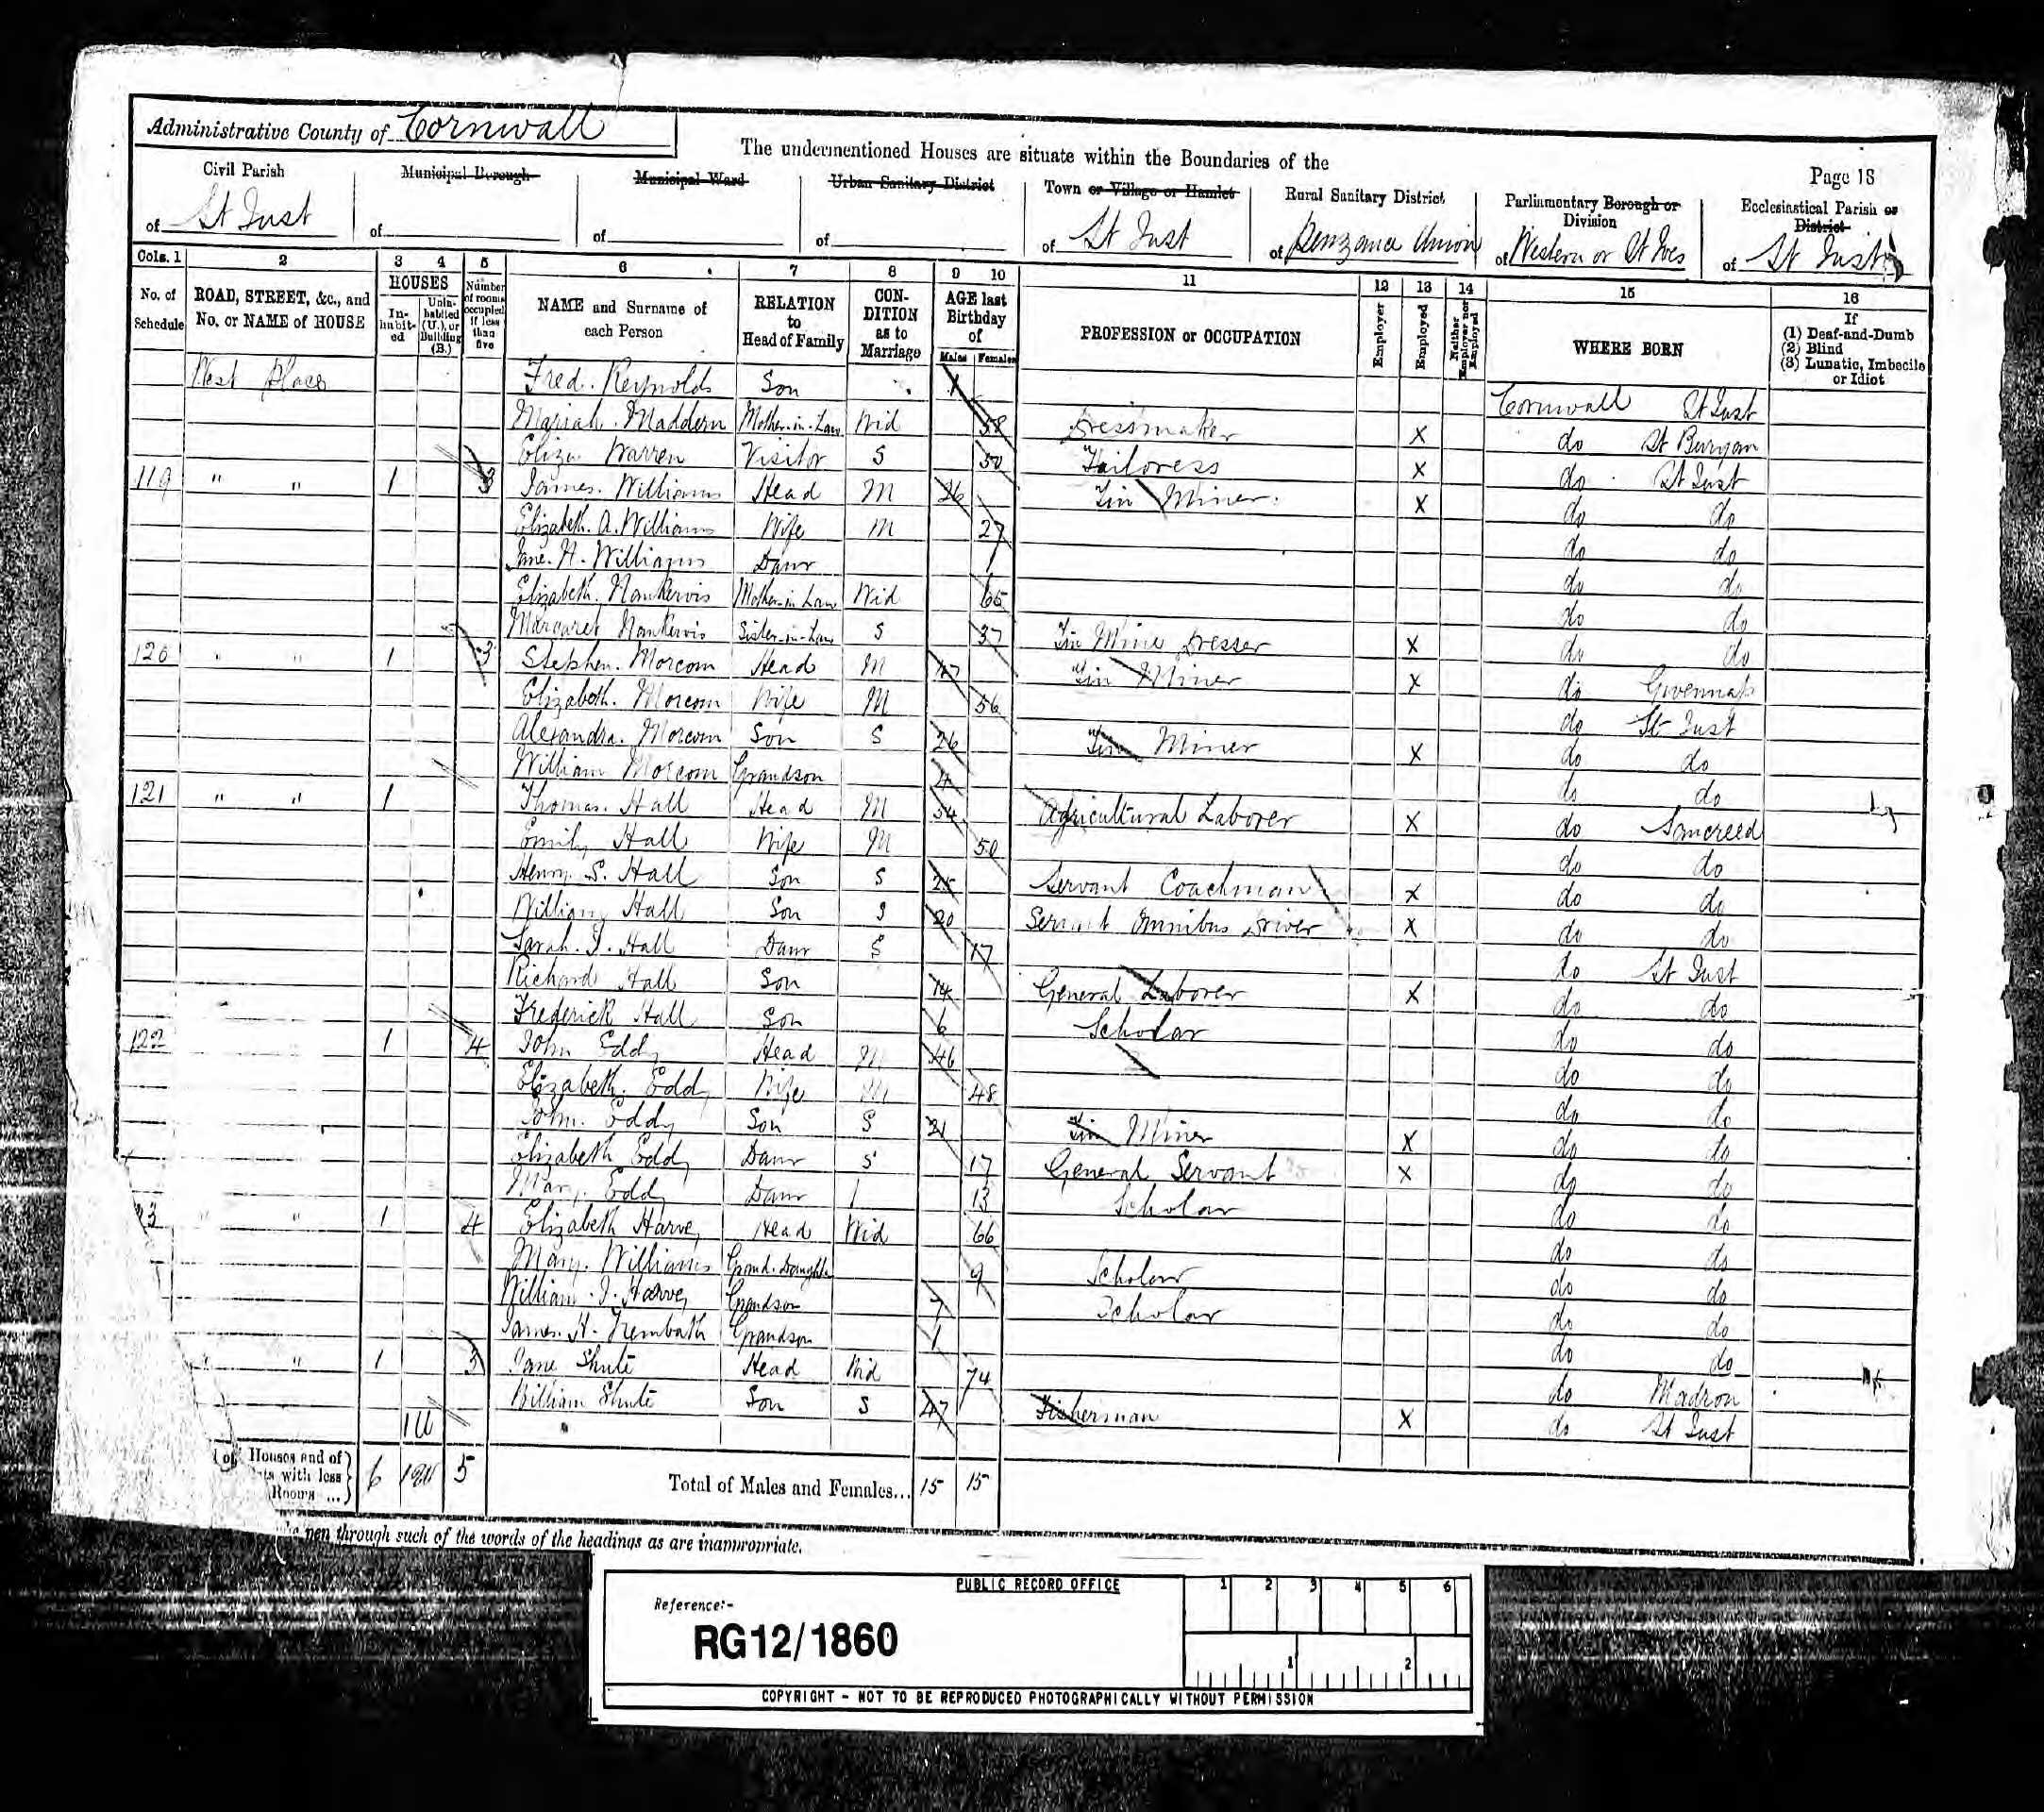 Administrative County of Cornwall
The undermentioned Houses are situate within the Boundaries of the
Page 18
Civil Parish of St Just
Municipal Borough of
Municipal Ward of
Urban Sanitary District of
Town or Village or Hamlet of St Just
Rural Sanitary District of Penzance Union
Parliamentary Borough or Division of Western or St Ives
Ecclesiastical Parish or District of St Just
Cols. 1 2 3 4 5 6 7 8 9 10 11 12 13 14 15 16
No. of Schedule
ROAD, STREET, &c., and No. or NAME of HOUSE
HOUSES
In-habit-ed
Unin-habited (U.), or Building (B.)
Number of rooms occupied if less than five
NAME and Surname of each Person
RELATION to Head of Family
CON-DITION as to Marriage
AGE last Birthday of
Males Females
PROFESSION or OCCUPATION
Employer
Employed
Neither Employer nor Employed
WHERE BORN
If (1) Deaf-and-Dumb (2) Blind (3) Lunatic, Imbecile or Idiot
West Place Fred. Reynolds Son 1 Cornwall St Just
Mariah. Maddern Mother-in-Law Wid 58 Dressmaker X do St Buryan
Eliza Warren Visitor S 50 Tailoress X do St Just
119 " " 1 3 James. Williams Head M 26 Tin Miner X do do
Elizabeth. A. Williams Wife M 27 do do
Jane. H. Williams Daur 1 do do
Elizabeth. Nankervis Mother-in-Law Wid 65 do do
Margaret Nankervis Sister-in-Law S 37 Tin Mine Dresser X do do
120 " " 1 3 Stephen. Morcom Head M 47 Tin Miner X do Gwennap
Elizabeth. Morcom Wife M 56 do St Just
Alexandra. Morcom Son S 26 Tin Miner X do do
William Morcom Grandson 4 do do
121 " " 1 Thomas. Hall Head M 54 Agricultural Laborer X do Sancreed
Emily Hall Wife M 50 do do
Henry. S. Hall Son S 25 Servant Coachman X do do
William Hall Son S 20 Servant Omnibus Driver X do do
Sarah. J. Hall Daur S 17 do St Just
Richard Hall Son 14 General Laborer X do do
Frederick Hall Son 6 Scholar do do
122 1 4 John Eddy Head M 46 do do
Elizabeth. Eddy Wife M 48 do do
John. Eddy Son S 21 Tin Miner X do do
Elizabeth Eddy Daur S 17 General Servant X do do
Mary. Eddy Daur 13 Scholar do do
23 " " 1 4 Elizabeth Harvey Head Wid 66 do do
Mary. Williams Grand.Daughter 9 Scholar do do
William. J. Harvey Grandson 7 Scholar do do
James. H. Trembath Grandson 1 do do
" " 1 3 Jane Shute Head Wid 74 do Madron
William Shute Son S 47 Fisherman X do St Just
1U
of Houses and of
ts with less
Rooms ...
6 5 Total of Males and Females... 15 15
pen through such of the words of the headings as are inappropriate.
PUBLIC RECORD OFFICE
Reference:-
RG12/1860
1 2 3 4 5 6
1 2
COPYRIGHT - NOT TO BE REPRODUCED PHOTOGRAPHICALLY WITHOUT PERMISSION